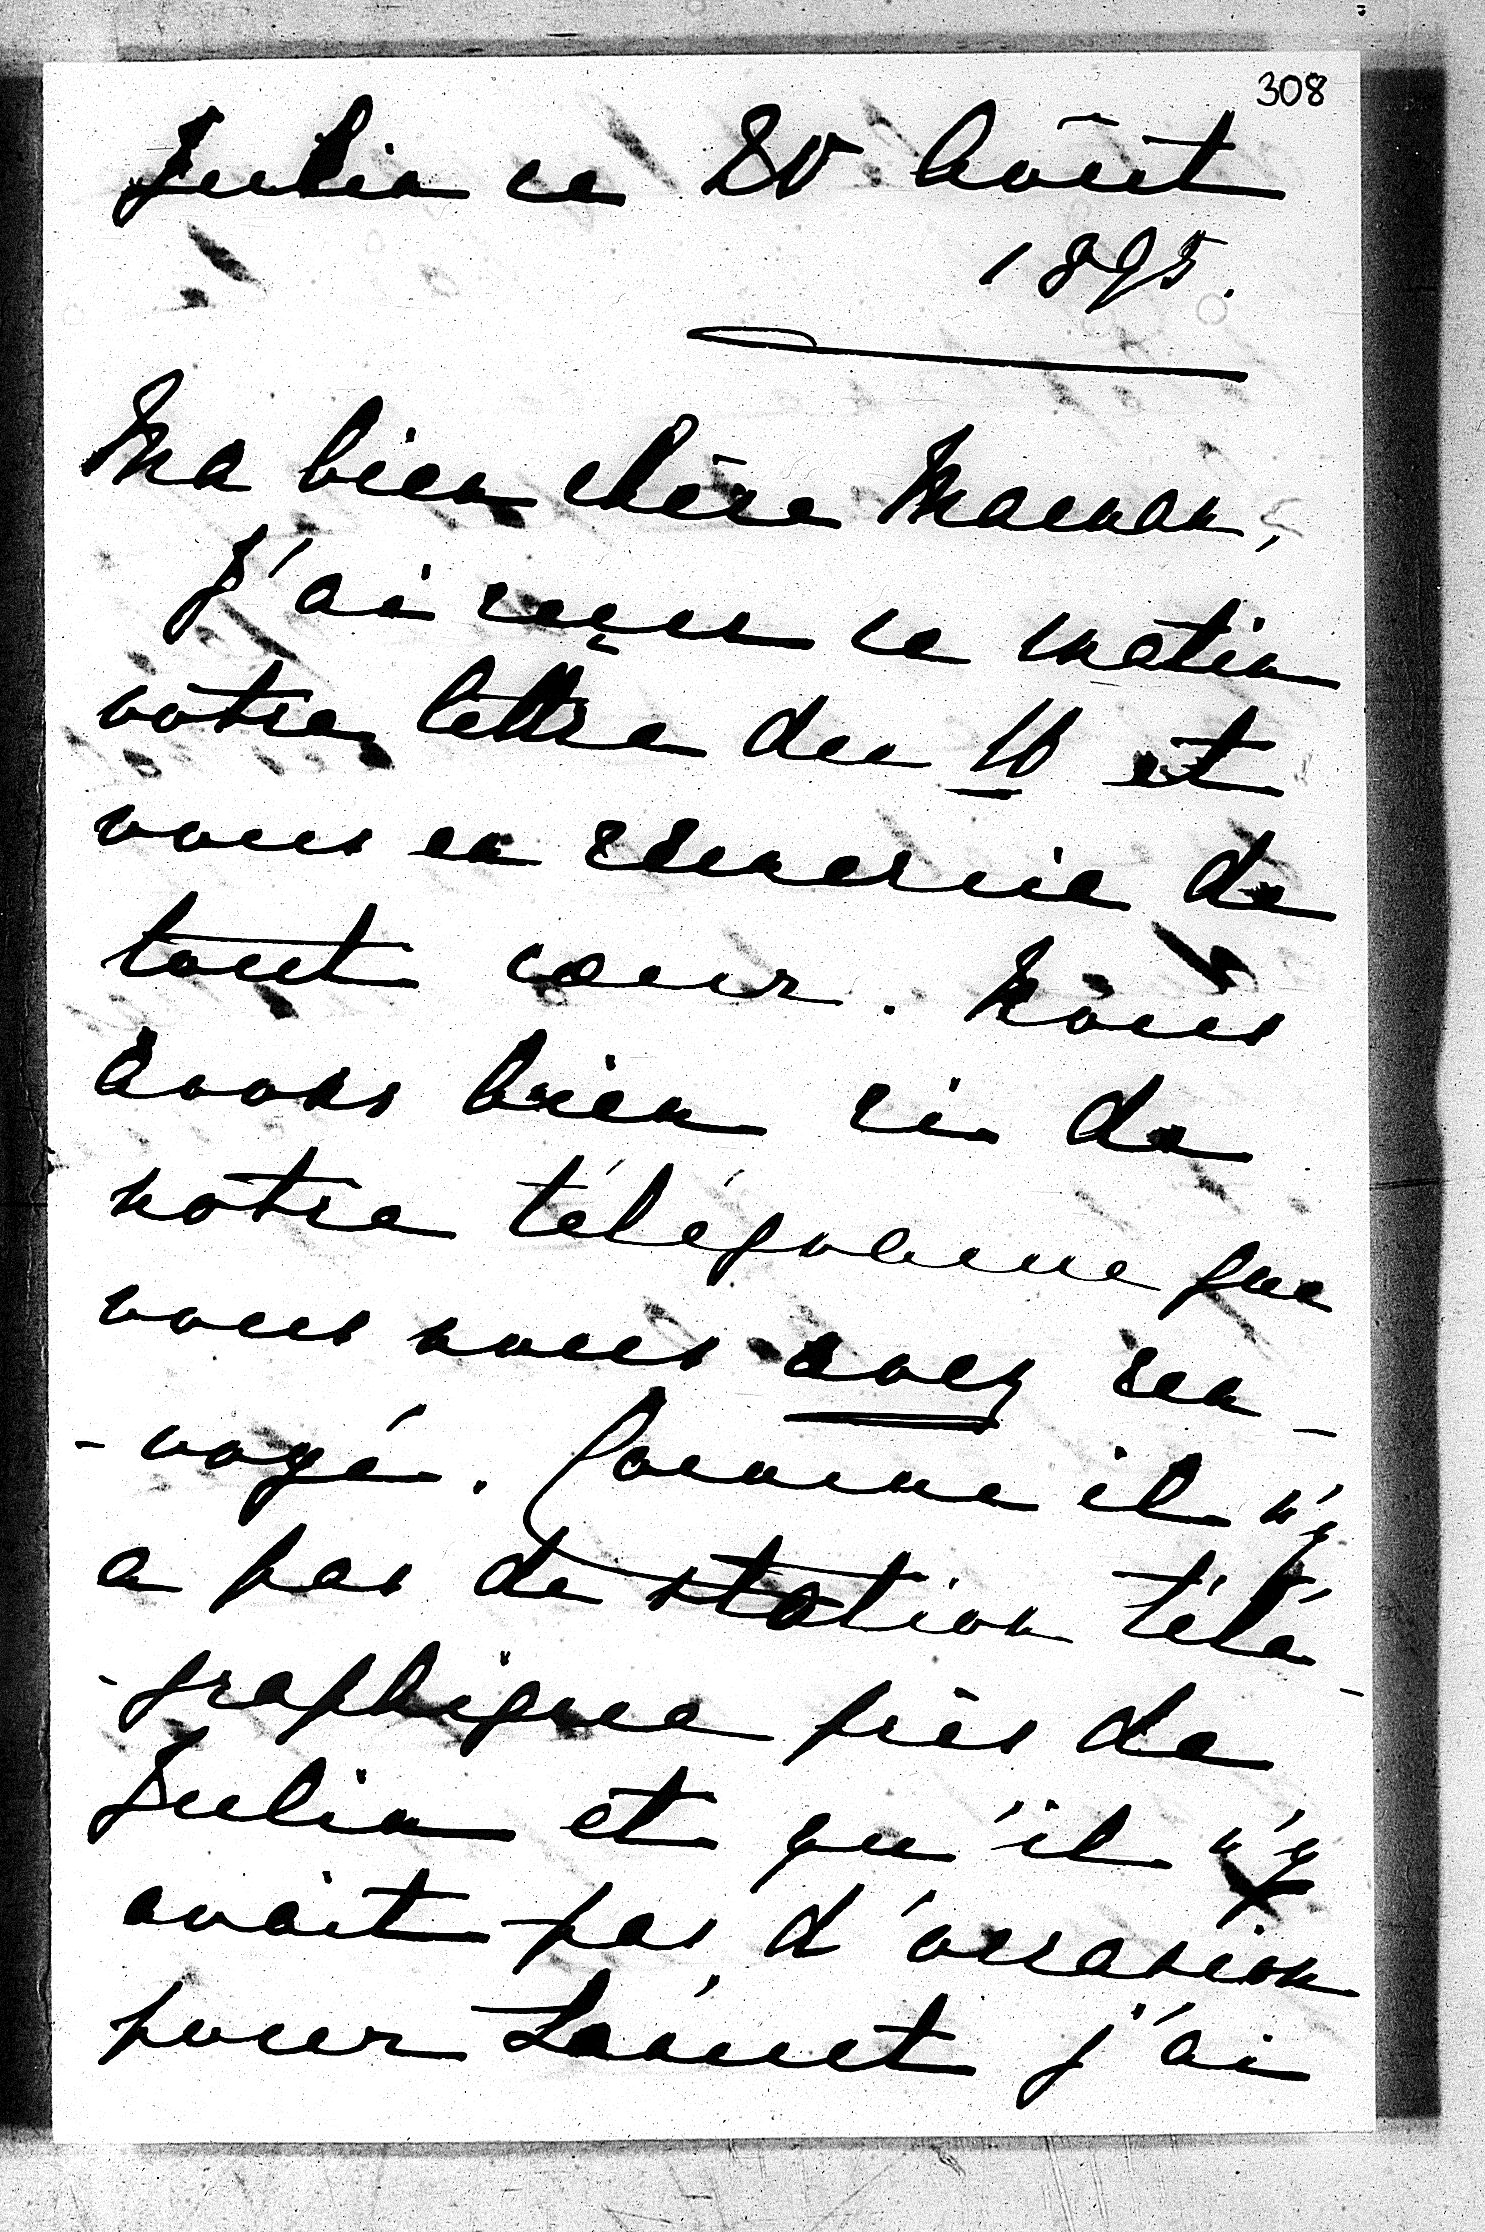 308
Julin ce 20 Août
1895.
Ma bien chère Maman,
J'ai reçu ce matin
votre lettre du 16 et
vous en remercie de
tout cœur. Nous
avons bien ri de
notre télégramme que
vous nous avez ren-
-voyé. Comme il n'y
a pas de station télé-
-graphique près de
Julin et qu'il n'y
avait pas d'occasion
pour j'ai